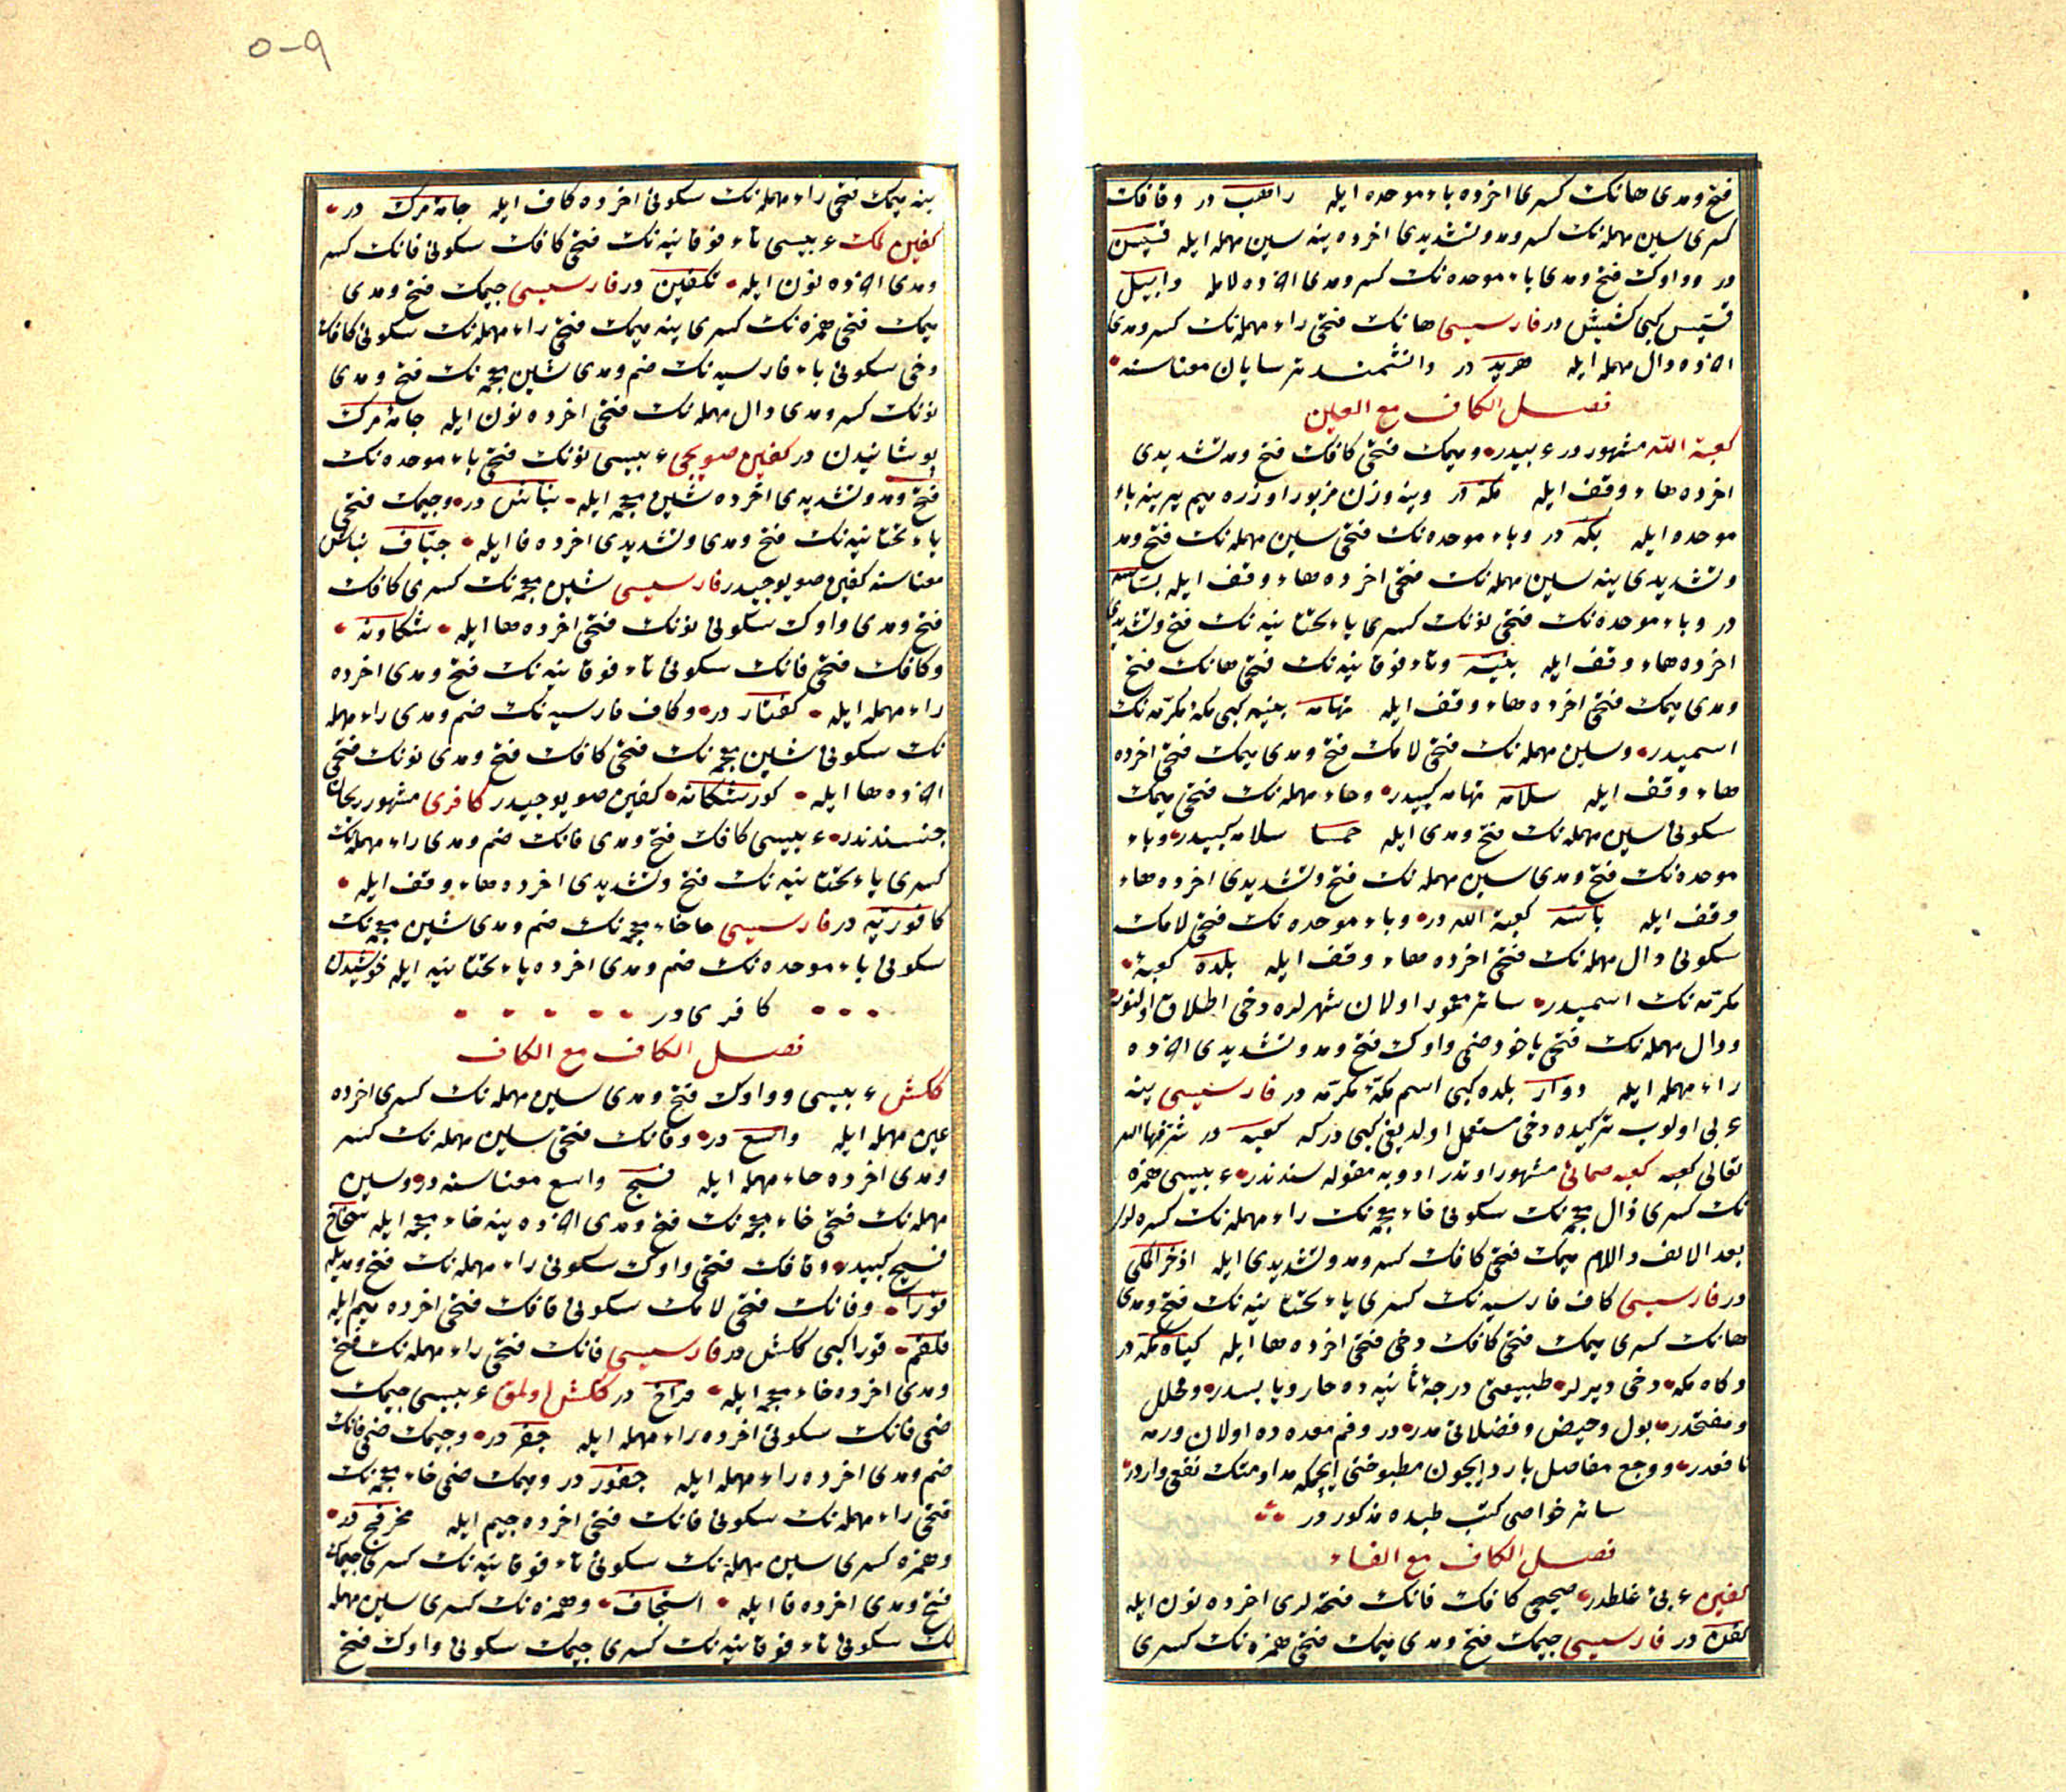 فتح ومدی هانك كسری اخرده باء موحده ایله راهب در وقافك
كسری سین مهمله نك كسر ومد وتشدیدی اخرده ینه سین مهمله ایله قسیس
در وواوك فتح ومدی باء موحده نك كسر ومدی اخرده لامله وابیل
قسیس كبی كشیش در فارسیسی هانك فتحی راء مهمله نك كسر ومدی
اخرده دال مهمله ایله هربد در دانشمند ترسایان معناسنه
فصل الكاف مع العین
كعبة الله مشهوردر عربیدر ومیمك فتحی كافك فتح ومد تشدیدی
اخرده هاء وقف ایله مكه در وینه وزن مزبور اوزره میم یرینه باء
موحده ایله بكه در وباء موحده نك فتحی سین مهمله نك فتح ومد
وتشدیدی ینه سین مهمله نك فتحی اخرده هاء وقف ایله بساسه
در وباء موحده نك فتحی نونك كسری یاء تحتانیه نك فتح وتشدیدی
اخرده هاء وقف ایله بنیه وتاء فوقانیه نك فتحی هانك فتح
ومدی میمك فتحی اخرده هاء وقف ایله تهامه بنیه كبی مكۀ مكرمه نك
اسمیدر وسین مهمله نك فتحی لامك فتح ومدی میمك فتحی اخرده
هاء وقف ایله سلامه تهامه كبیدر وحاء مهمله نك فتحی میمك
سكونی سین مهمله نك فتح ومدی ایله حمسا سلامه كبیدر وباء
موحده نك فتح ومدی سین مهمله نك فتح وتشدیدی اخرده هاء
وقف ایله باسه كعبة الله در وباء موحده نك فتحی لامك
سكونی دال مهمله نك فتحی اخرده هاء وقف ایله بلده كعبۀ
مكرمه نك اسمیدر سائر معمور اولان شهرلره دخی اطلاق اولنور
ودال مهمله نك فتحی یاخود ضمی واوك فتح ومد وتشدیدی اخرده
راء مهمله ایله دوار بلده كبی اسم مكۀ مكرمه در فارسیسی ینه
عربی اولوب تركیده دخی مستعمل اولدیغی كبی دركه كعبه در شرفها الله
تعالی كعبه كعبه صمانی مشهور اوتدر ادویه مقوله سندندر عربیسی همزه
نك كسری ذال معجمه نك سكونی خاء معجمه نك راء مهمله نك كسره لری
بعد الالف واللام میمك فتحی كافك كسر ومد وتشدیدی ایله اذخر المكی
در فارسیسی كاف فارسیه نك كسری یاء تحتانیه نك فتح ومدی
هانك كسری میمك فتحی كافك دخی فتحی اخرده ها ایله كیاه مكه در
وكاه مكه دخی دیرلر طبیعتی درجۀ ثانیه ده حار ویابسدر ومحلل
ومفتحدر بول وحیض وفضلاتی مدر در وفم معده ده اولان ورمه
نافعدر ووجع مفاصل بارد ایچون مطبوخنی ایچمكه مداومتك نفعی واردر
سائر خواصی كتب طبده مذكوردر
فصل الكاف مع الفاء
كفین عربی غلطدر صحیحی كافك فانك فتحه لری اخرده نون ایله
كفن در فارسیسی جیمك فتح ومدی میمك فتحی همزه نك كسری
ینه میمك فتحی راء مهمله نك سكونی اخرده كاف ایله جامۀ مرك در
كفین لمك عربیسی تاء فوقانیه نك فتحی كافك سكونی فانك كسر
ومدی اخرده نون ایله تكفین در فارسیسی جیمك فتح ومدی
میمك فتحی همزه نك كسری ینه میمك فتحی راء مهمله نك سكونی كافك
دخی سكونی باء فارسیه نك ضم ومدی شین معجمه نك فتح ومدی
نونك كسر ومدی دال مهمله نك فتحی اخرده نون ایله جامۀ مرك
پوشانیدن در كفین صویجی عربیسی نونك فتحی باء موحده نك
فتح ومد وتشدیدی اخرده شین معجمه ایله نباش در وجیمك فتحی
یاء تحتانیه نك فتح ومدی وتشدیدی اخرده فا ایله جیاف نباش
معناسنه كفین صویوجیدر فارسیسی شین معجمه نك كسری كافك
فتح ومدی واوك سكونی نونك فتحی اخرده ها ایله شكاونه
وكافك فتحی فانك سكونی تاء فوقانیه نك فتح ومدی اخرده
راء مهمله ایله كفتار در وكاف فارسیه نك ضم ومدی راء مهمله
نك سكونی شین معجمه نك فتحی كافك فتح ومدی نونك فتحی
اخرده ها ایله كورشكانه كفین صویوجیدر كافری مشهور ریحان
جنسندندر عربیسی كافك فتح ومدی فانك ضم ومدی راء مهمله نك
كسری یاء تحتانیه نك فتح وتشدیدی اخرده هاء وقف ایله
كافوریه در فارسیسی خاء معجمه نك ضم ومدی شین معجمه نك
سكونی باء موحده نك ضم ومدی اخرده یاء تحتانیه ایله
كافری در
فصل الكاف مع الكاف
ككش عربیسی وواوك فتح ومدی سین مهمله نك كسری اخرده
عین مهمله ایله واسع در وفانك فتحی سین مهمله نك كسر
ومدی اخرده حاء مهمله ایله فسیح واسع معناسنه در وسین
مهمله نك فتحی خاء معجمه نك فتح ومدی اخرده ینه خاء معجمه ایله سخاخ
فسیح كبیدر وقافك فتحی واوك سكونی راء مهمله نك فتح ومدیله
قورا وفانك فتحی لامك سكونی قافك فتحی اخرده میم ایله
فلقم قورا كبی ككش در فارسیسی فانك فتحی راء مهمله نك فتح
ومدی اخرده خاء معجمه ایله فراخ در ككش اولمق عربیسی جیمك
ضمی فانك سكونی اخرده راء مهمله ایله جفر در وجیمك ضمی فانك
ضم ومدی اخرده راء مهمله ایله جفور در ومیمك ضمی خاء معجمه نك
فتحی راء مهمله نك سكونی فانك فتحی اخرده جیم ایله مخرفج در
وهمزه كسری سین مهمله نك سكونی تاء فوقانیه نك كسری جیمك
فتح ومدی اخرده فا ایله استجاف وهمزه نك كسری سین مهمله
نك سكونی تاء فوقانیه نك كسری جیمك سكونی واوك فتح